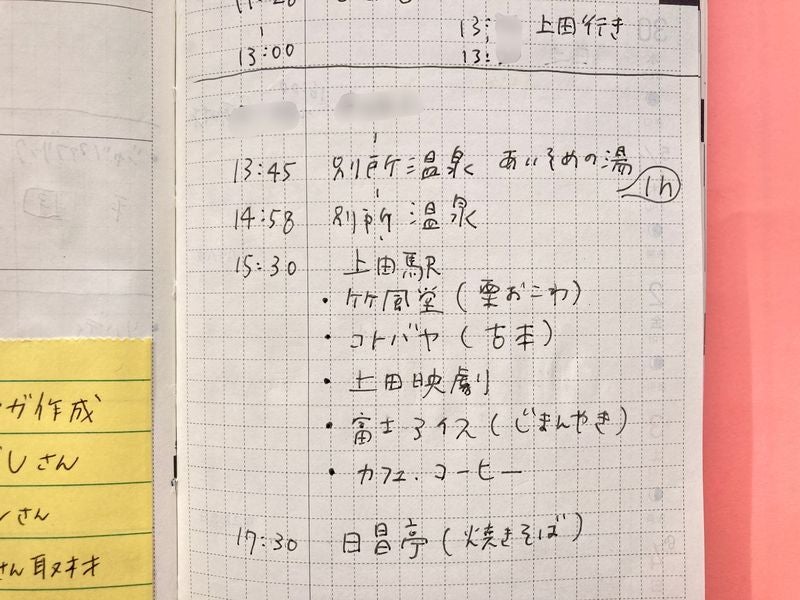 13:00
13: 上田行き
13:
13:45 別所温泉 あいそめの湯
1h
14:58 別所温泉
15:30 上田駅
・竹風堂(栗おこわ)
・コトバヤ(古本)
・上田映劇
・富士アイス(じまんやき)
・カフェ.コーヒー
17:30 日昌亭(焼きそば)
ガ作成
しさん
さん
さん取材